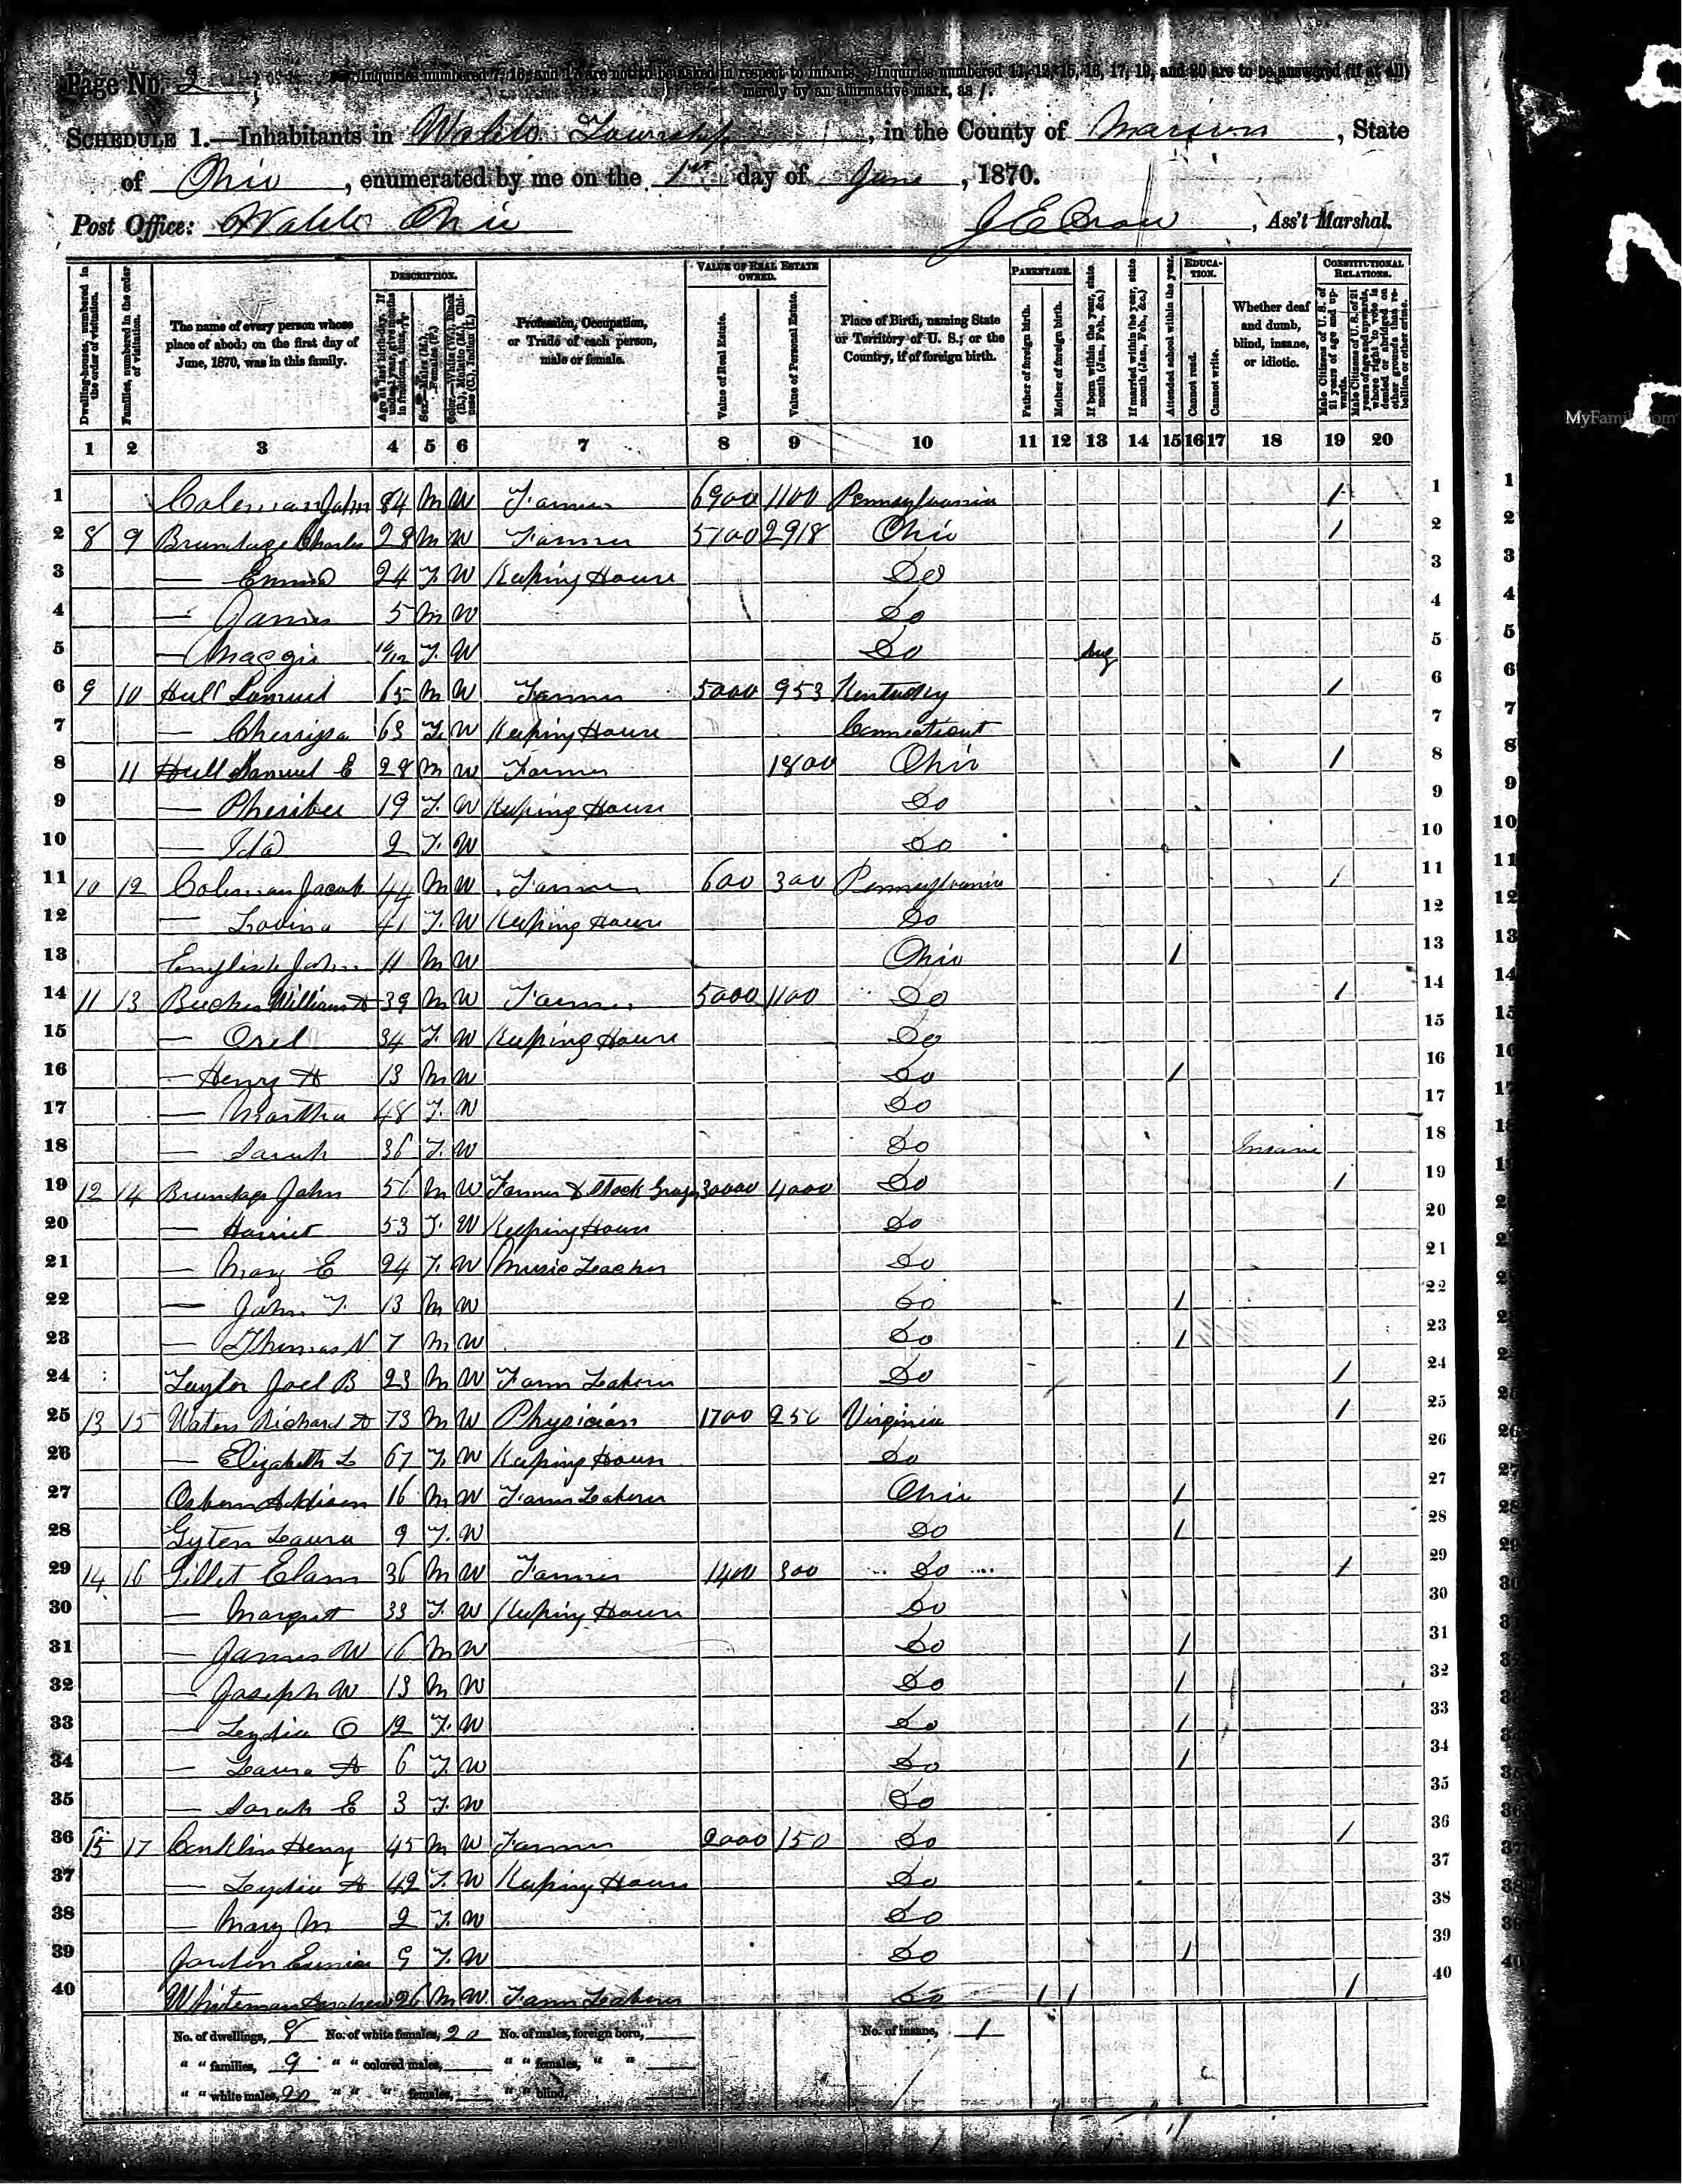 Page No. 2
Inquiries numbered 7, 16, and 17 are not to be asked in respect to infants. Inquiries numbered 11, 12, 15, 16, 17, 19, and 20 are to be answered (if at all)
merely by an affirmative mark, as /.
SCHEDULE 1.—Inhabitants in Waldo Township, in the County of Marion, State
of Ohio, enumerated by me on the 1st day of June, 1870.
Post Office: Waldo Ohio J E Crow, Ass't Marshal.
DESCRIPTION. VALUE OF REAL ESTATE OWNED. PARENTAGE. EDUCATION. CONSTITUTIONAL RELATIONS.
Dwelling-houses, numbered in the order of visitation.
Families, numbered in the order of visitation.
The name of every person whose place of abode on the first day of June, 1870, was in this family.
Age at last birth-day. If under 1 year, give months in fractions, thus, 3/12
Sex.—Males (M.), Females (F.)
Color.—White (W.), Black (B.), Mulatto (M.), Chinese (C.), Indian (I.)
Profession, Occupation, or Trade of each person, male or female.
Value of Real Estate.
Value of Personal Estate.
Place of Birth, naming State or Territory of U. S.; or the Country, if of foreign birth.
Father of foreign birth.
Mother of foreign birth.
If born within the year, state month (Jan., Feb., &c.)
If married within the year, state month (Jan., Feb., &c.)
Attended school within the year.
Cannot read.
Cannot write.
Whether deaf and dumb, blind, insane, or idiotic.
Male Citizens of U. S. of 21 years of age and upwards.
Male Citizens of U. S. of 21 years of age and upwards, whose right to vote is denied or abridged on other grounds than rebellion or other crime.
1 2 3 4 5 6 7 8 9 10 11 12 13 14 15 16 17 18 19 20
MyFamily.com
1 Coleman John 84 M W Farmer 6900 1100 Pennsylvania / 1
2 8 9 Brundage Charles 28 M W Farmer 5100 2918 Ohio / 2
3 — Emma 24 F W Keeping House Do 3
4 — James 5 M W Do 4
5 — Maggie 10/12 F W Do Aug 5
6 9 10 Hull Samuel 65 M W Farmer 5000 953 Kentucky / 6
7 — 63 F W Keeping House Connecticut 7
8 11 Hull Samuel E 28 M W Farmer 1800 Ohio / 8
9 — 19 F W Keeping House Do 9
10 — Ida 2 F W Do 10
11 10 12 Coleman Jacob 44 M W Farmer 600 300 Pennsylvania / 11
12 — Lovina 41 F W Keeping House Do 12
13 English John 11 M W Ohio / 13
14 11 13 William H 39 M W Farmer 5000 1100 Do / 14
15 — Orel 34 F W Keeping House Do 15
16 — Henry H 13 M W Do / 16
17 — Martha 48 F W Do 17
18 — Sarah 36 F W Do Insane 18
19 12 14 Brundage John 56 M W Farmer & Stock 30000 4000 Do / 19
20 — Harriet 53 F W Keeping House Do 20
21 — Mary E 24 F W Music Teacher Do 21
22 — John F 13 M W Do / 22
23 — Thomas N 7 M W Do / 23
24 Taylor Joel B 23 M W Farm Laborer Do / 24
25 13 15 Waters Richard D 73 M W Physician 1700 250 Virginia / 25
26 — Elizabeth L 67 F W Keeping House Do 26
27 Osborn Addison 16 M W Farm Laborer Ohio / 27
28 Laura 9 F W Do / 28
29 14 16 Gillet Elam 36 M W Farmer 1400 300 Do / 29
30 — Margret 33 F W Keeping House Do 30
31 — James W 16 M W Do / 31
32 — Joseph W 13 M W Do / 32
33 — Lydia O 12 F W Do / 33
34 — Laura A 6 F W Do / 34
35 — Sarah E 3 F W Do 35
36 15 17 Conklin Henry 45 M W Farmer 2000 150 Do / 36
37 — Lydia A 42 F W Keeping House Do 37
38 — Mary M 2 F W Do 38
39 9 F W Do / 39
40 Whiteman Andrew 26 M W Farm Laborer Do / / / 40
No. of dwellings, 8 No. of white females, 20 No. of males, foreign born, No. of insane, 1
" " families, 9 " " colored males, " " females, " "
" " white males, 20 " " " females, " " blind,